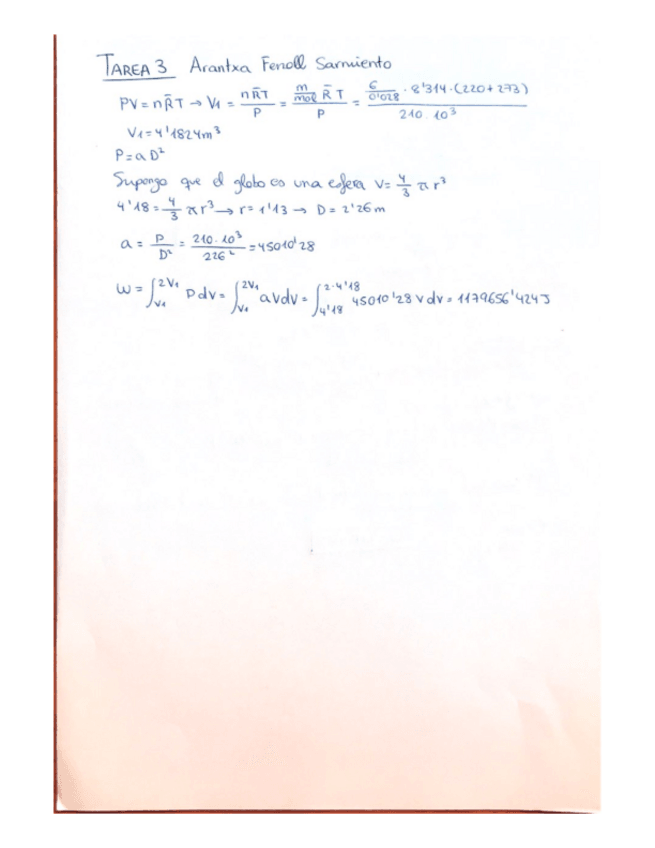 TAREA 3 Arantxa Fenoll Sarmiento
PV = nR̄T → V1 = nR̄T / P = (m/mol R̄ T) / P = (6/0'028 · 8'314 · (220 + 273)) / 210 · 10³
V1 = 4'1824 m³
P = a D²
Supongo que el globo es una esfera V = 4/3 π r³
4'18 = 4/3 π r³ → r = 1'13 → D = 2'26 m
a = P / D² = 210 · 10³ / 226² = 45010'28
W = ∫_{V1}^{2V1} P dv = ∫_{V1}^{2V1} a V dv = ∫_{4'18}^{2·4'18} 45010'28 V dv = 1179656'424 J